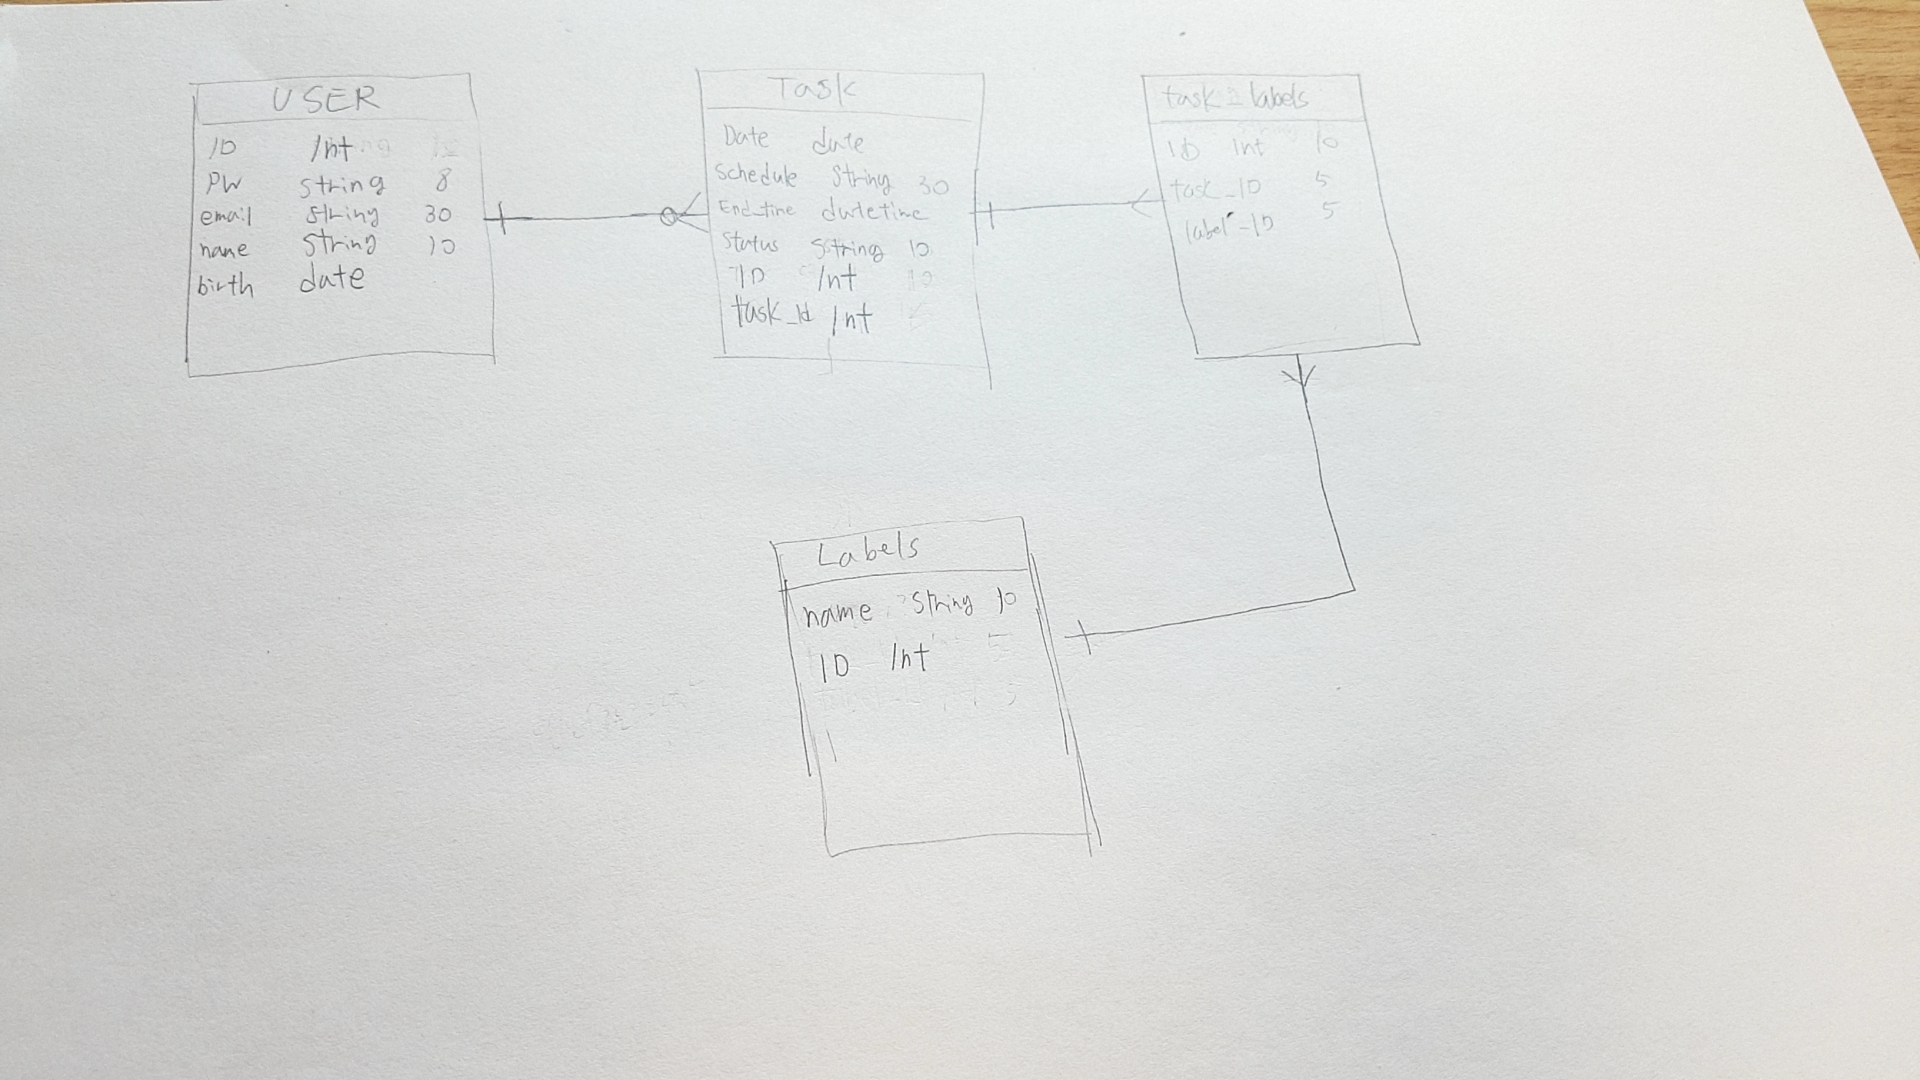 USER
ID Int
PW string 8
email string 30
name string 10
birth date
Task
Date date
Schedule String 30
End_time datetime
Status Sstring 10
ID Int 10
task_Id Int
task_labels
ID Int 10
task_ID 5
label_ID 5
Labels
name String 10
ID Int